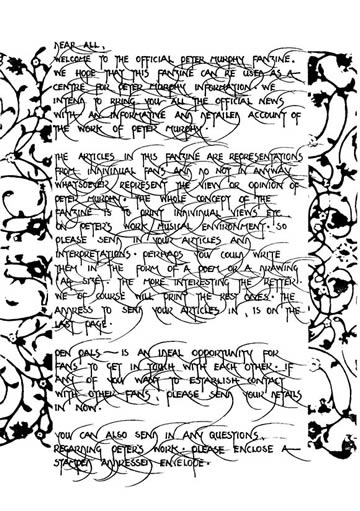 DEAR ALL,
WELCOME TO THE OFFICIAL PETER MURPHY FANZINE.
WE HOPE THAT THIS FANZINE CAN BE USED AS A
CENTRE FOR PETER MURPHY INFORMATION. WE
INTEND TO BRING YOU ALL THE OFFICIAL NEWS
WITH AN INFORMATIVE AND DETAILED ACCOUNT OF
THE WORK OF PETER MURPHY.
THE ARTICLES IN THIS FANZINE ARE REPRESENTATIONS
FROM INDIVIDUAL FANS AND DO NOT IN ANYWAY
WHATSOEVER REPRESENT THE VIEW OR OPINION OF
PETER MURPHY. THE WHOLE CONCEPT OF THE
FANZINE IS TO PRINT INDIVIDUAL VIEWS ETC
ON PETER'S WORK, MUSICAL ENVIRONMENT. SO
PLEASE SEND IN YOUR ARTICLES AND
INTERPRETATIONS. PERHAPS YOU COULD WRITE
THEM IN THE FORM OF A POEM OR A DRAWING
THE MORE INTERESTING THE BETTER.
WE OF COURSE WILL PRINT THE BEST ONES. THE
ADDRESS TO SEND YOUR ARTICLES IN, IS ON THE
LAST PAGE.
PEN PALS — IS AN IDEAL OPPORTUNITY FOR
FANS TO GET IN TOUCH WITH EACH OTHER. IF
ANY OF YOU WANT TO ESTABLISH CONTACT
WITH OTHER FANS, PLEASE SEND YOUR DETAILS
IN NOW.
YOU CAN ALSO SEND IN ANY QUESTIONS,
REGARDING PETER'S WORK. PLEASE ENCLOSE A
STAMPED ADDRESSED ENVELOPE.